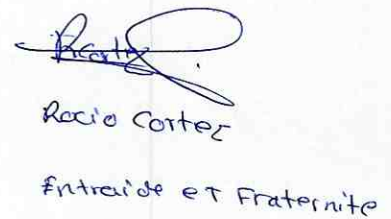 RCortez
Rocio Cortez
Entraide et Fraternite